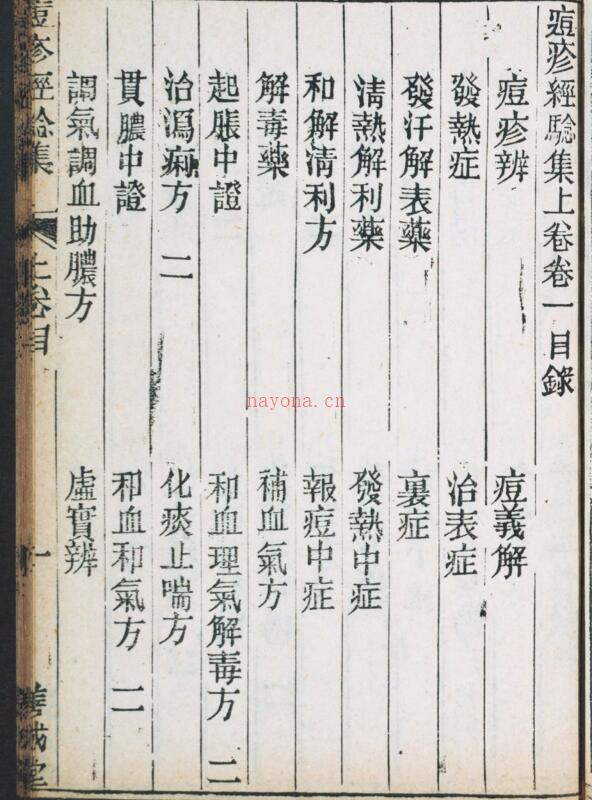 痘疹經騐集上卷卷一目錄
痘疹辨 痘義解
發熱症 治表症
發汗解表藥 裏症
清熱解利藥 發熱中症
和解清利方 報痘中症
解毒藥 補血氣方
起脹中證 和血理氣解毒方 二
治瀉痢方 二 化痰止喘方
貫膿中證 和血和氣方 二
調氣調血助膿方 虛實辨
痘疹經騐集 上卷目 一 善成堂
nayona.cn